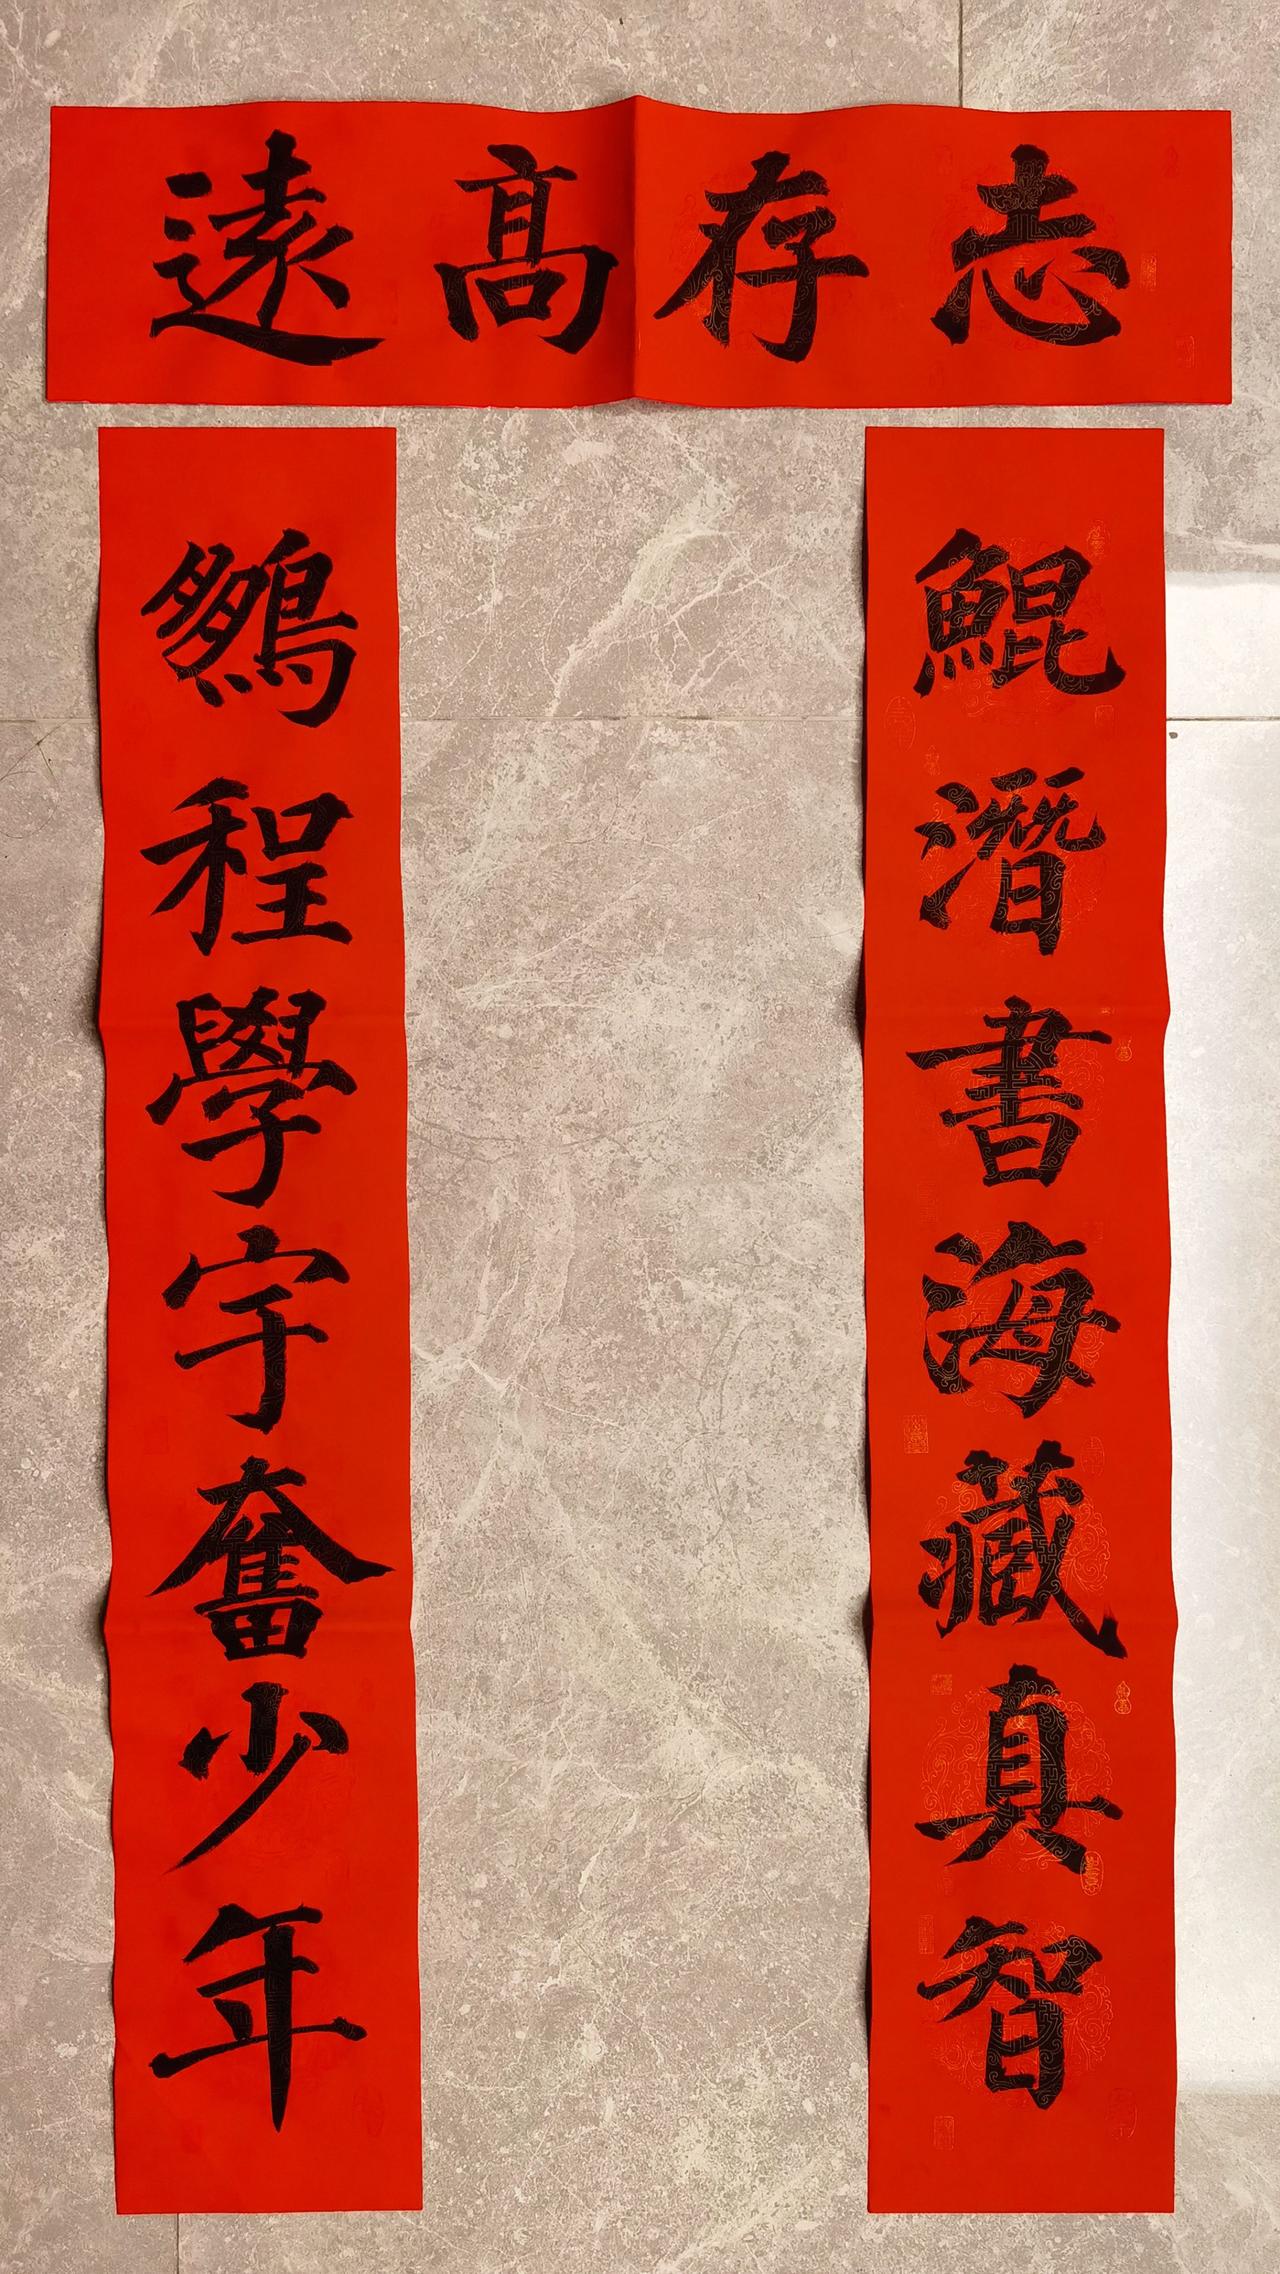 志存高遠
鯤潛書海藏真智
鵬程學宇奮少年